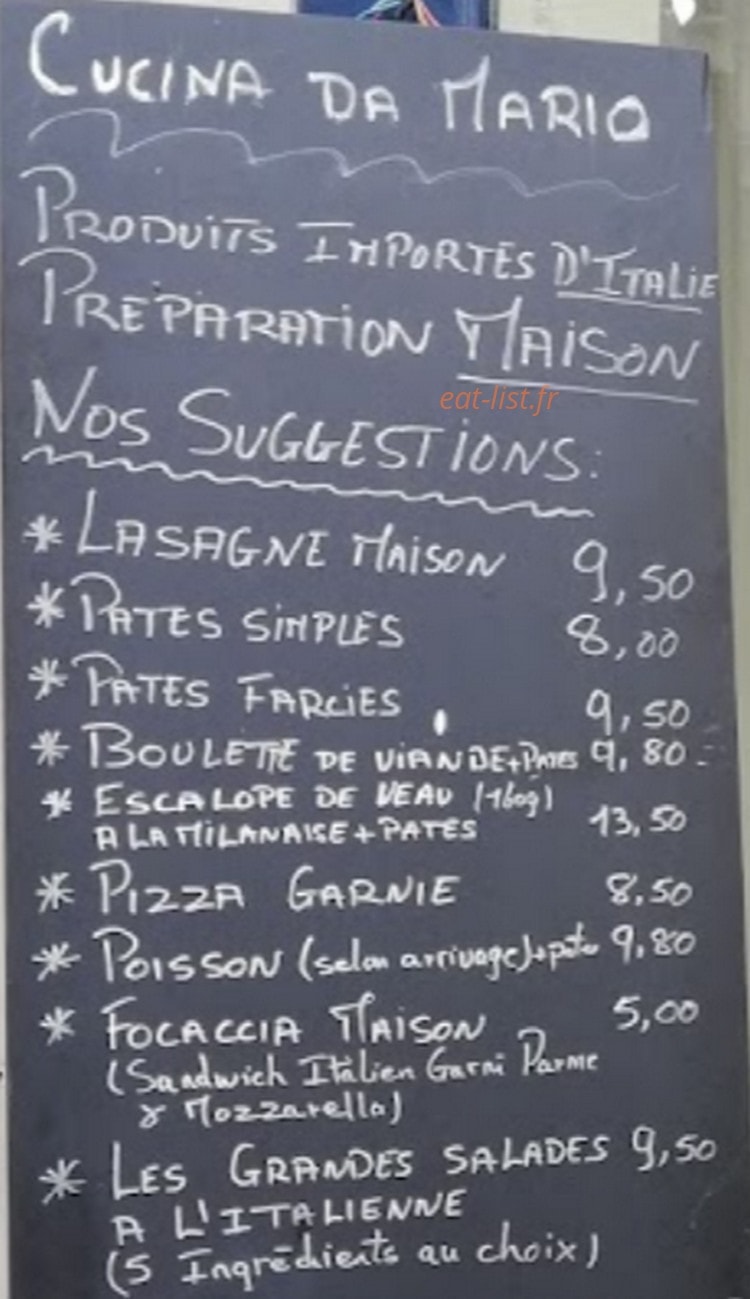 CUCINA DA MARIO
PRODUITS IMPORTES D'ITALIE
PREPARATION MAISON
eat-list.fr
NOS SUGGESTIONS:
* LASAGNE MAISON 9,50
* PATES SIMPLES 8,00
* PATES FARCIES 9,50
* BOULETTE DE VIANDE+PATES 9,80
* ESCALOPE DE VEAU (160g)
A LA MILANAISE + PATES 13,50
* PIZZA GARNIE 8.50
* POISSON (selon arrivage)+pates 9,80
* FOCACCIA MAISON 5,00
(Sandwich Italien Garni Parme
& Mozzarella)
* LES GRANDES SALADES 9,50
A L'ITALIENNE
(5 Ingrédients au choix)